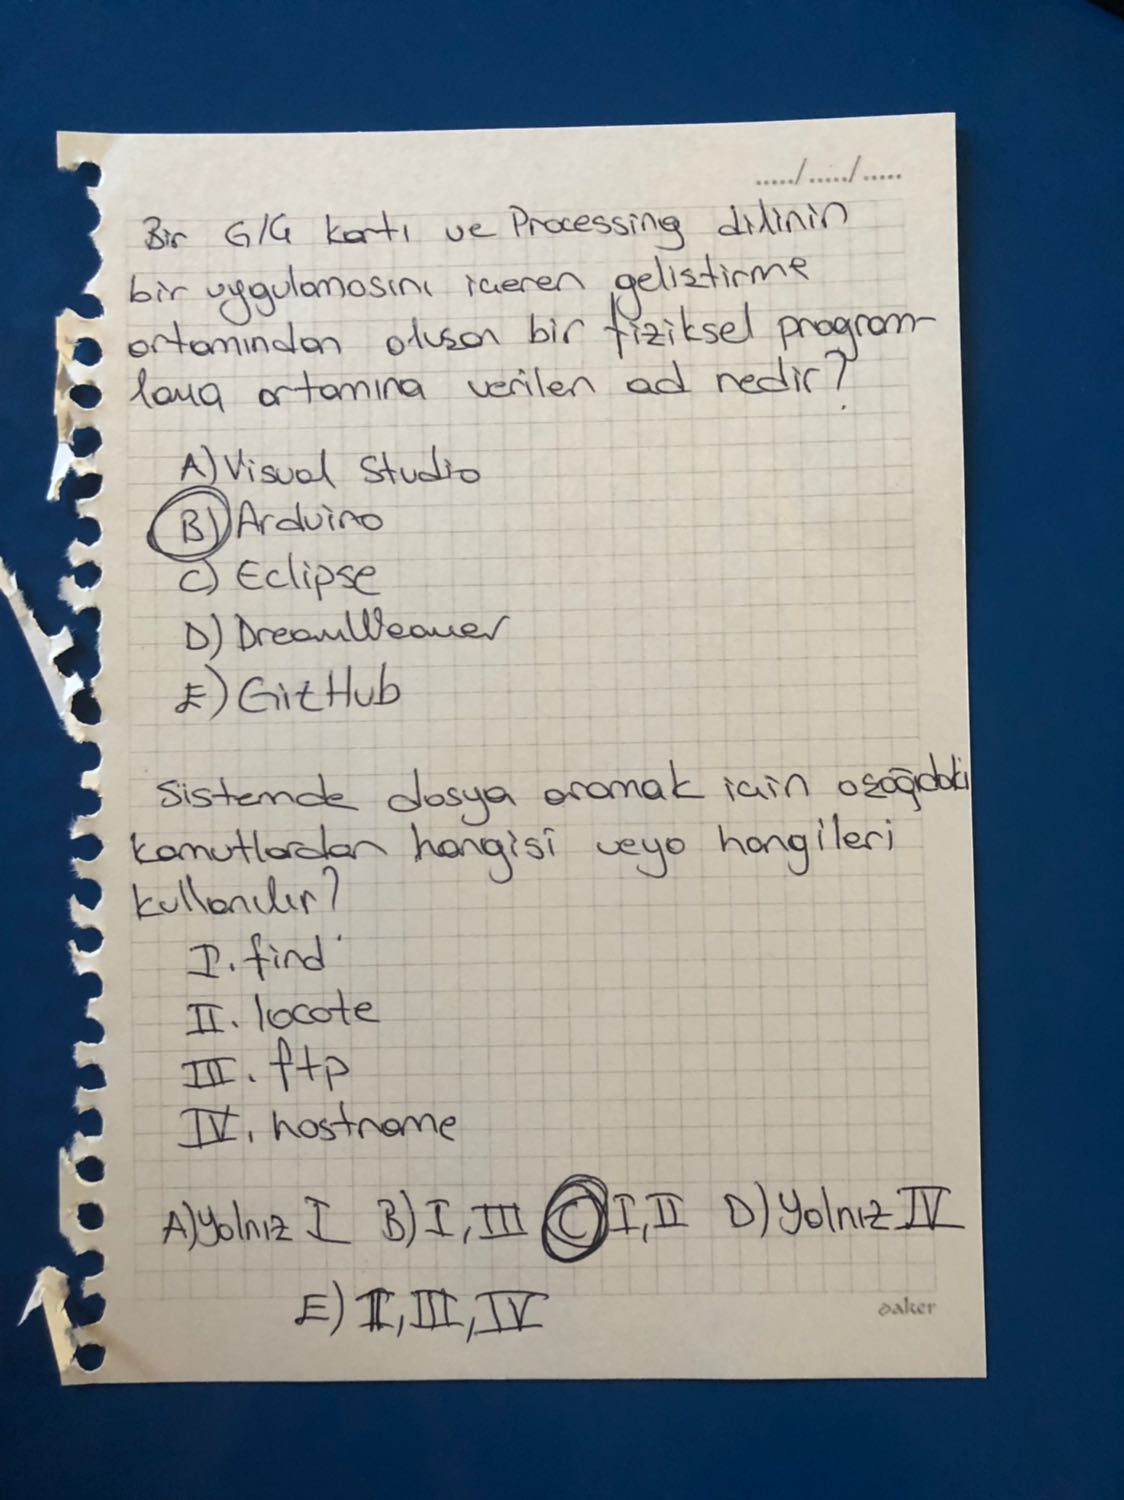 ...../...../.....
Bir G/Ç kartı ve Processing dilinin
bir uygulamasını içeren geliştirme
ortamından oluşan bir fiziksel program-
lama ortamına verilen ad nedir?
A) Visual Studio
B) Arduino
C) Eclipse
D) DreamWeaver
E) GitHub
Sistemde dosya aramak için aşağıdaki
komutlardan hangisi veya hangileri
kullanılır?
I. find
II. locate
III. ftp
IV. hostname
A) Yalnız I B) I, III C) I, II D) Yalnız IV
E) II, III, IV